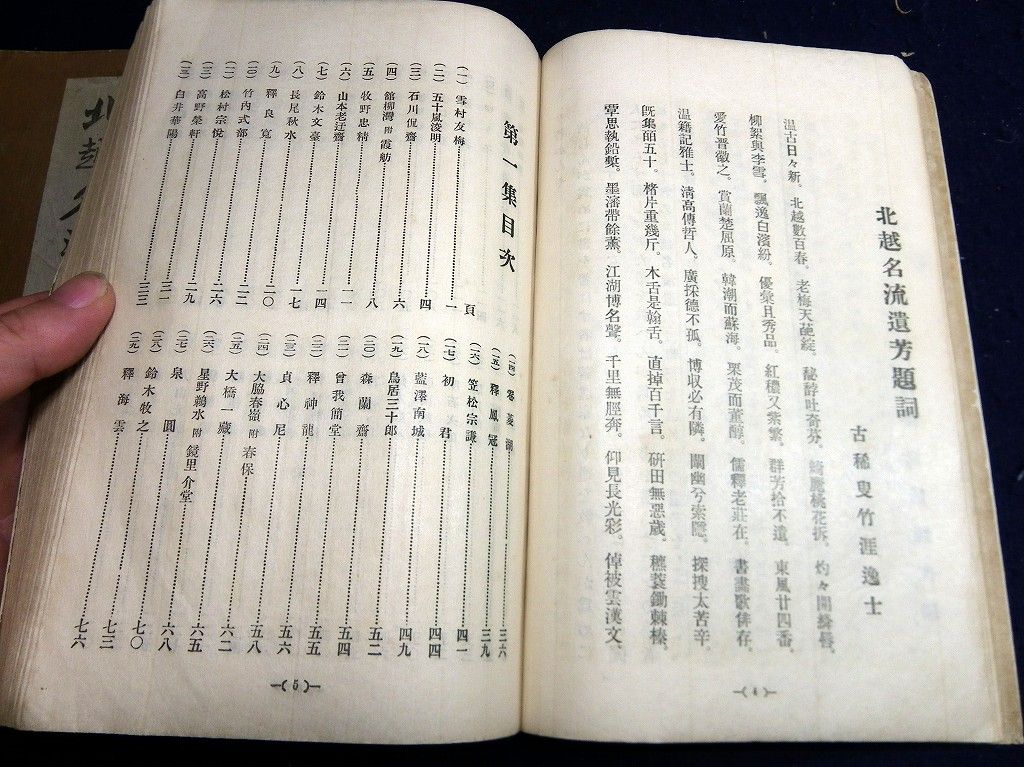 北越名流遺芳題詞
古稀叟竹涯逸士
温古日々新。北越數百春。老梅天葩綻。秘醇吐奇芬。綺麗桃花拆。灼々開絳唇。
柳絮與李雪。飄逸白濱紛。優粲且秀品。紅穠又紫繁。群芳拾不遺。東風廿四番。
愛竹晋徽之。賞蘭楚屈原。韓潮而蘇海。栗茂而董醇。儒釋老莊在。書畫歌俳存。
温籍記雅士。清高傳哲人。廣採德不孤。博収必有隣。闡幽兮索隱。探捜太苦辛。
既集個五十。楮片重幾斤。木舌是翰舌。直掉百千言。研田無惡歳。穮蓘鋤棘榛。
覃思執鉛槧。墨瀋帶餘薫。江湖博名聲。千里無脛奔。仰見長光彩。倬彼雲漢文。
第一集目次
頁
(一) 雪村友梅 一
(二) 五十嵐浚明 四
(三) 石川侃齋 六
(四) 舘柳灣 附 霞舫 六
(五) 牧野忠精 八
(六) 山本老迂齋 一一
(七) 鈴木文臺 一四
(八) 長尾秋水 一七
(九) 釋良寛 二〇
(一〇) 竹内式部 二三
(一一) 松村宗悦 二六
(一二) 高野榮軒 二九
(一三) 白井華陽 三一
三三
(一四) 巻菱湖 三六
(一五) 釋鳳冠 三九
(一六) 笠松宗謙 四一
(一七) 初君 四四
(一八) 藍澤南城 四九
(一九) 鳥居三十郎 五二
(二〇) 森蘭齋 五四
(二一) 曾我簡堂 五五
(二二) 釋神龍 五六
(二三) 貞心尼 五八
(二四) 大脇春嶺 附 春保 六二
(二五) 大橋一藏 六五
(二六) 星野鵜水 附 鏡里 介堂 六八
(二七) 泉圓 七〇
(二八) 鈴木牧之 七三
(二九) 釋海雲 七六
—( 5 )—